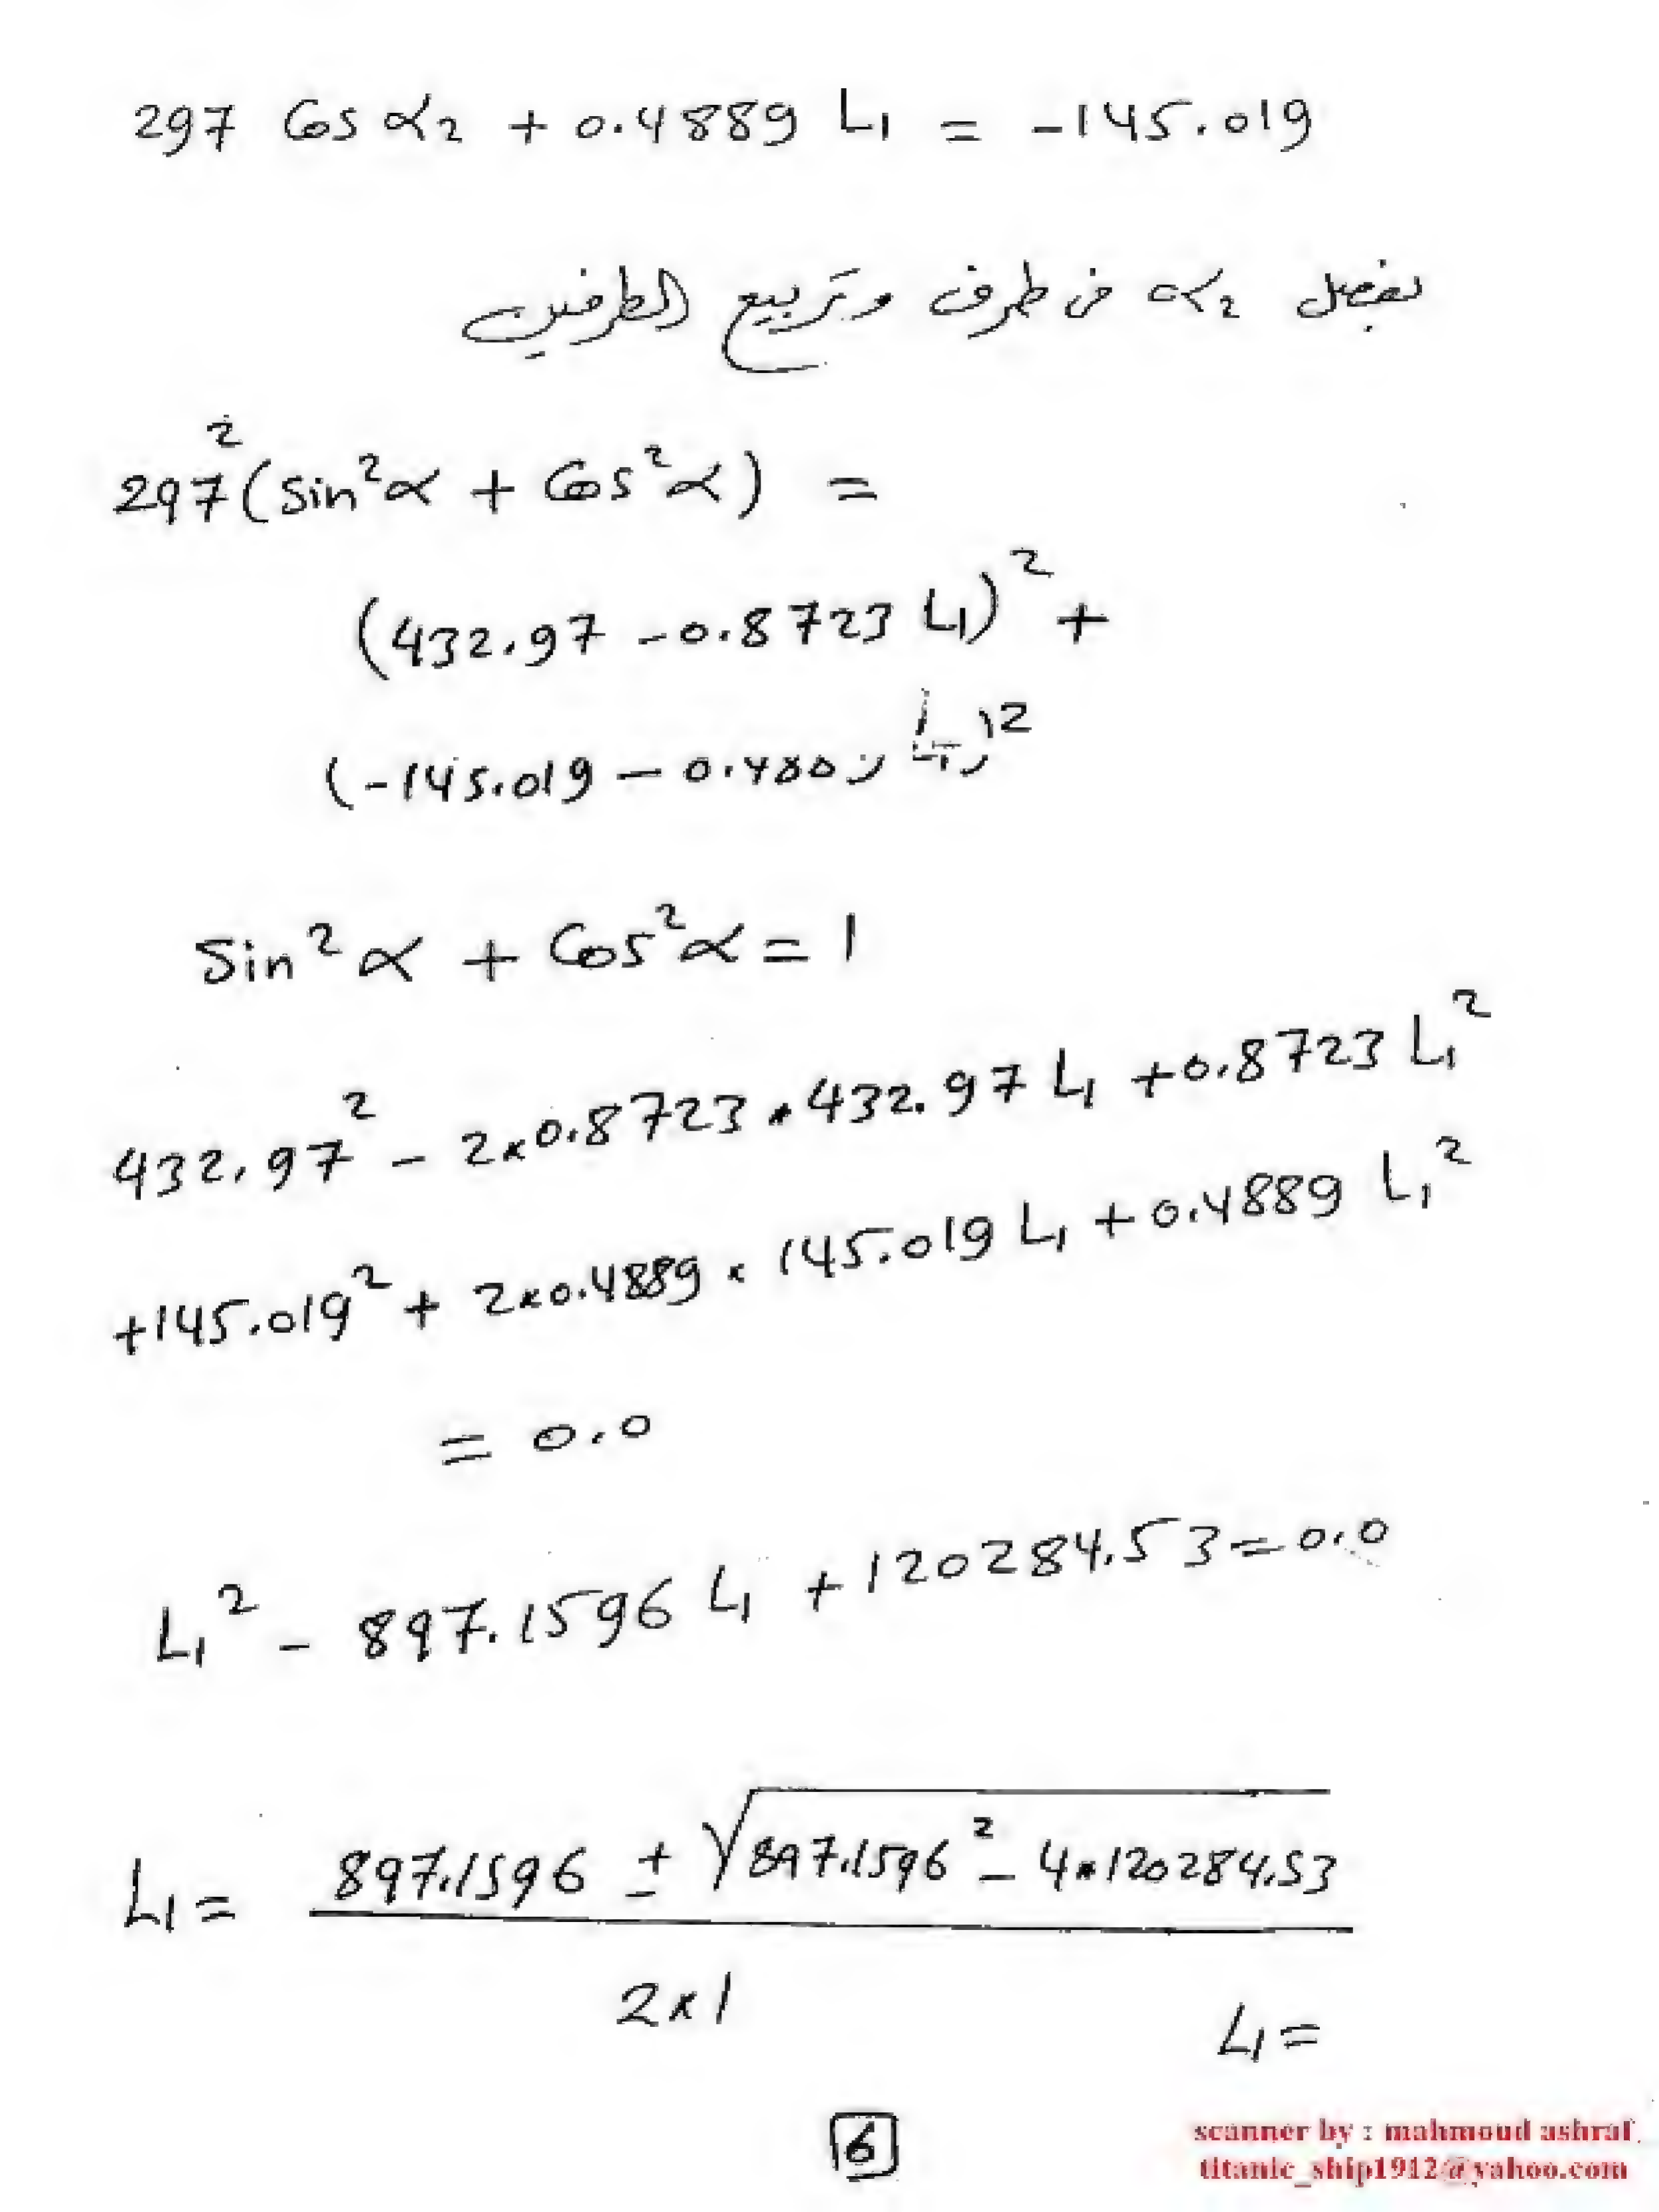 297 Cos α2 + 0.4889 L1 = -145.019
نفصل α2 فى طرف وتربيع الطرفين
297²(Sin²α + Cos²α) =
(432.97 - 0.8723 L1)² +
(-145.019 - 0.4889 L1)²
Sin²α + Cos²α = 1
432.97² - 2×0.8723 * 432.97 L1 + 0.8723 L1²
+145.019² + 2×0.4889 × 145.019 L1 + 0.4889 L1²
= 0.0
L1² - 897.1596 L1 + 120284.53 = 0.0
L1 = 897.1596 ± √897.1596² - 4*120284.53
2×1
L1 =
6
scanner by : mahmoud ashraf
titanic_ship1912@yahoo.com